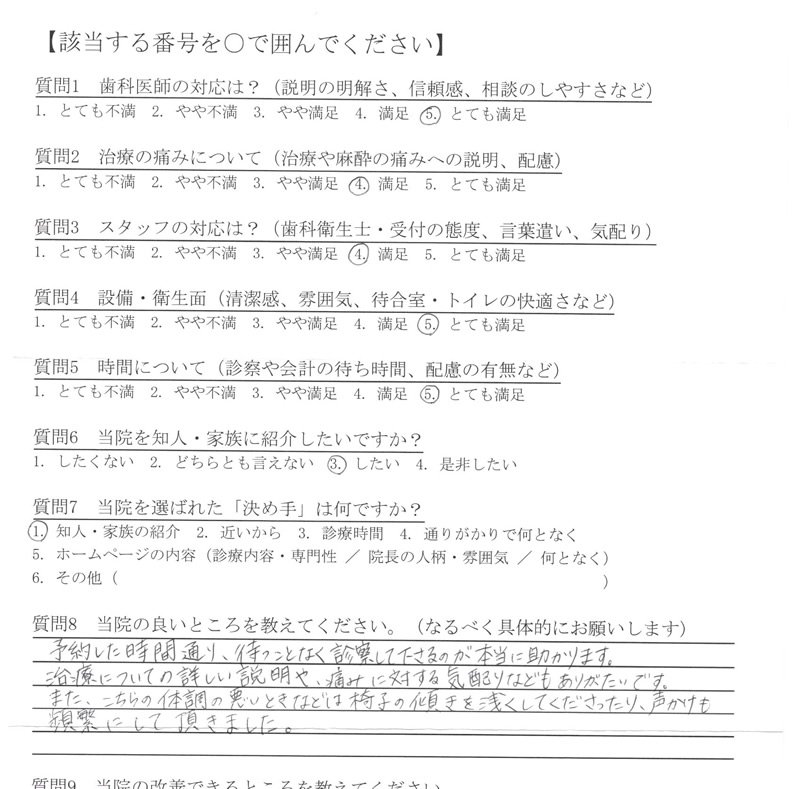 【該当する番号を○で囲んでください】
質問1 歯科医師の対応は？（説明の明解さ、信頼感、相談のしやすさなど）
1. とても不満 2. やや不満 3. やや満足 4. 満足 5. とても満足
質問2 治療の痛みについて（治療や麻酔の痛みへの説明、配慮）
1. とても不満 2. やや不満 3. やや満足 4. 満足 5. とても満足
質問3 スタッフの対応は？（歯科衛生士・受付の態度、言葉遣い、気配り）
1. とても不満 2. やや不満 3. やや満足 4. 満足 5. とても満足
質問4 設備・衛生面（清潔感、雰囲気、待合室・トイレの快適さなど）
1. とても不満 2. やや不満 3. やや満足 4. 満足 5. とても満足
質問5 時間について（診察や会計の待ち時間、配慮の有無など）
1. とても不満 2. やや不満 3. やや満足 4. 満足 5. とても満足
質問6 当院を知人・家族に紹介したいですか？
1. したくない 2. どちらとも言えない 3. したい 4. 是非したい
質問7 当院を選ばれた「決め手」は何ですか？
1. 知人・家族の紹介 2. 近いから 3. 診療時間 4. 通りがかりで何となく
5. ホームページの内容（診療内容・専門性 ／ 院長の人柄・雰囲気 ／ 何となく）
6. その他（ ）
質問8 当院の良いところを教えてください。（なるべく具体的にお願いします）
予約した時間通り、待つことなく診察して下さるのが本当に助かります。
治療についての詳しい説明や、痛みに対する気配りなどもありがたいです。
また、こちらの体調の悪いときなどは椅子の傾きを浅くしてくださったり、声かけも
頻繁にして頂きました。
質問9 当院の改善できるところを教えてください